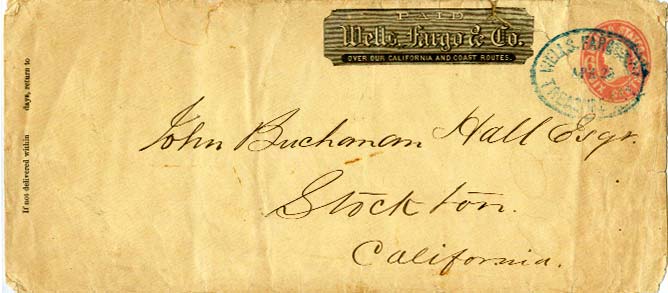 PAID
Wells, Fargo & Co.
OVER OUR CALIFORNIA AND COAST ROUTES.
WELLS, FARGO
John Buchanan Hall Esqr.
Stockton.
California.
If not delivered within days, return to